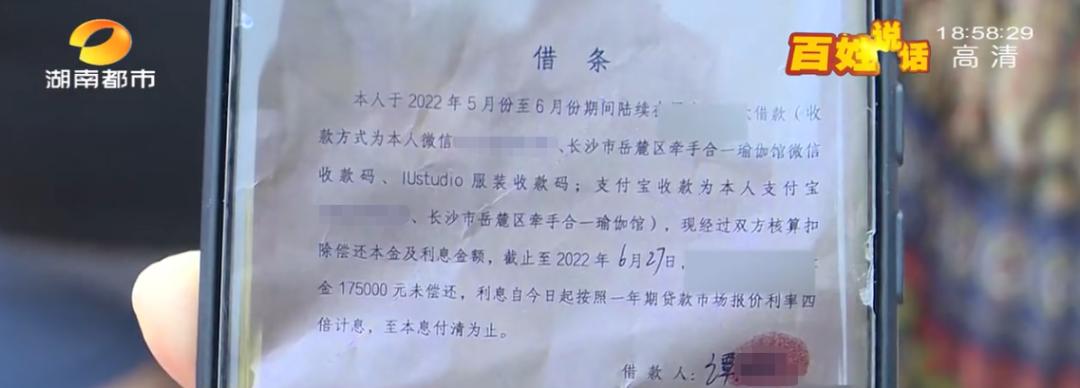 湖南都市
百姓说话
18:58:29
高清
借条
本人于2022年5月份至6月份期间陆续 借款（收
款方式为本人微信 、长沙市岳麓区牵手合一瑜伽馆微信
收款码、IUstudio服装收款码；支付宝收款为本人支付宝
、长沙市岳麓区牵手合一瑜伽馆），现经过双方核算扣
除偿还本金及利息金额，截止至2022年6月27日，
金175000元未偿还，利息自今日起按照一年期贷款市场报价利率四
倍计息，至本息付清为止。
借款人：谭